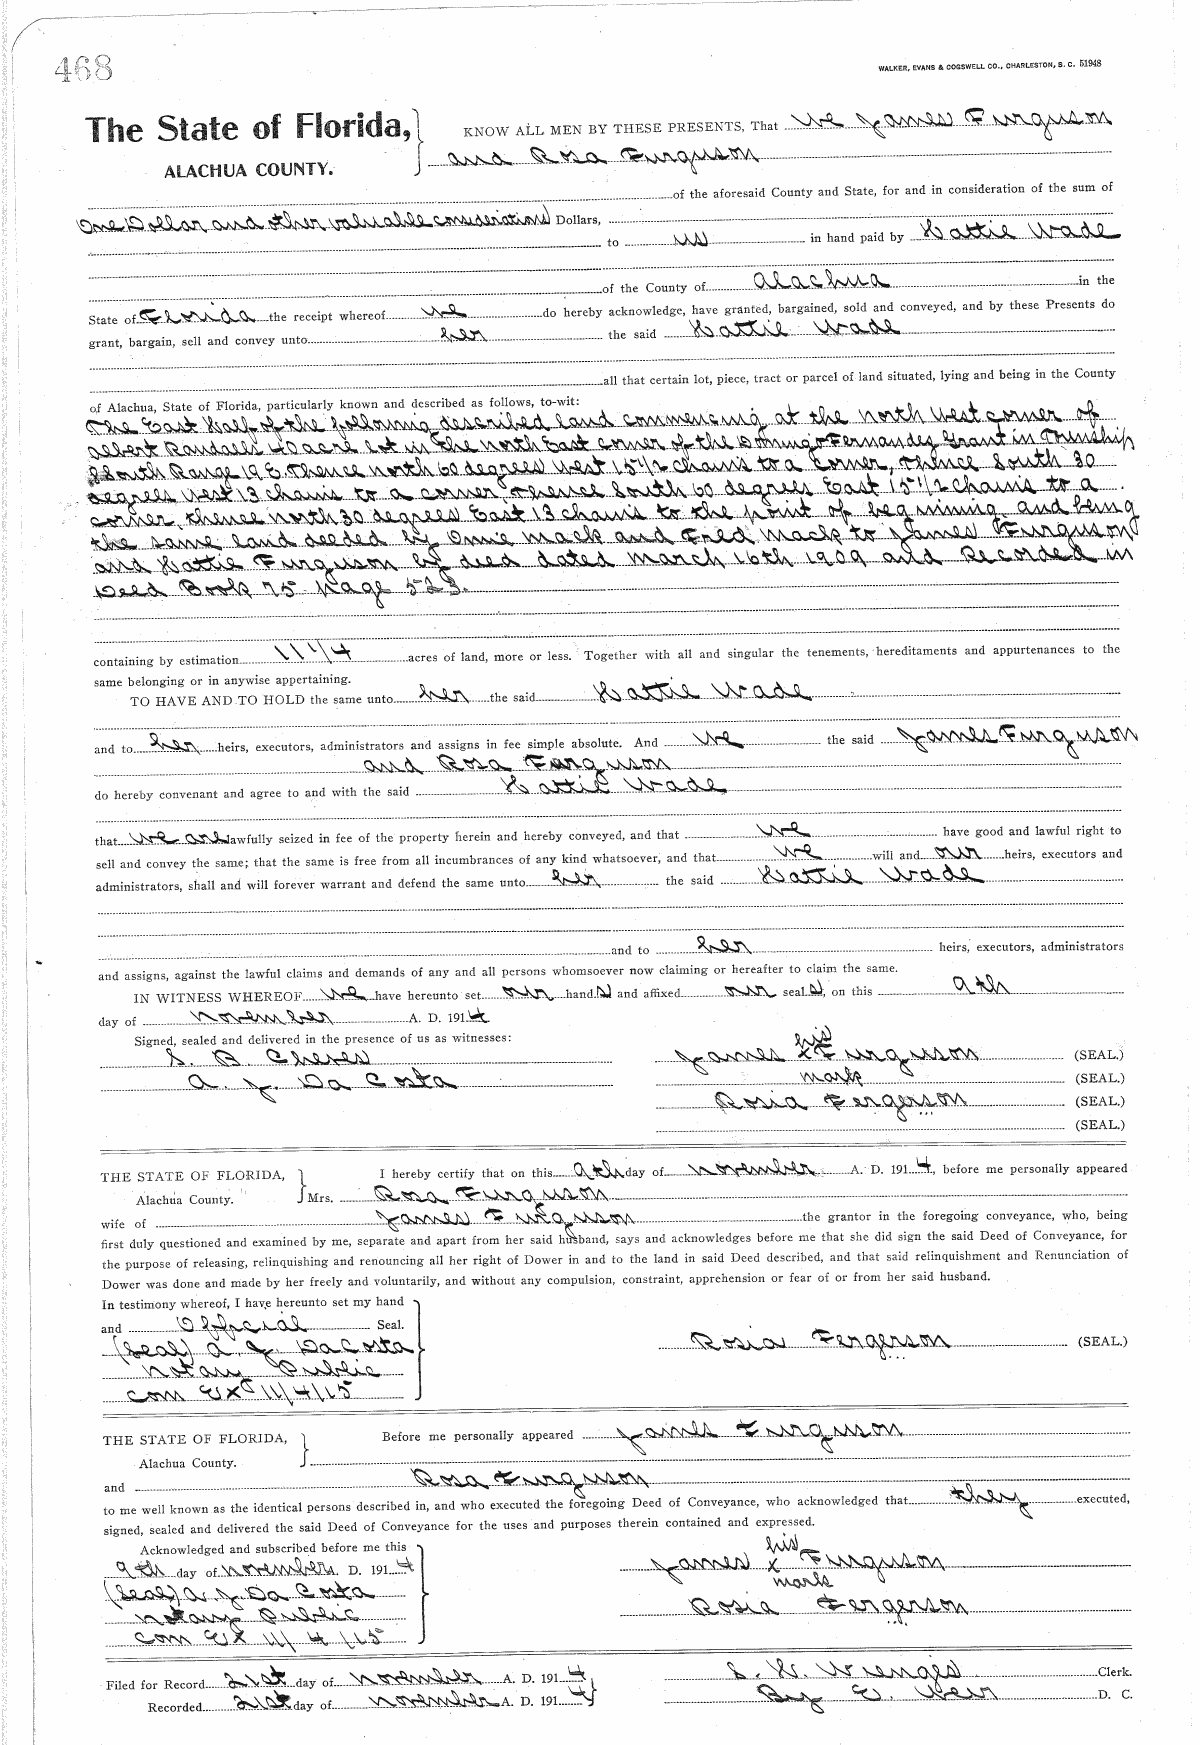 468
WALKER, EVANS & COGSWELL CO., CHARLESTON, S. C. 51948
The State of Florida,
ALACHUA COUNTY.
KNOW ALL MEN BY THESE PRESENTS, That We James Furguson
and Rosa Furguson
of the aforesaid County and State, for and in consideration of the sum of
One Dollar and other valuable considerations Dollars,
to us in hand paid by Hattie Wade
of the County of Alachua in the
State of Florida the receipt whereof we do hereby acknowledge, have granted, bargained, sold and conveyed, and by these Presents do
grant, bargain, sell and convey unto her the said Hattie Wade
all that certain lot, piece, tract or parcel of land situated, lying and being in the County
of Alachua, State of Florida, particularly known and described as follows, to-wit:
The East Half of the following described land commencing at the north West corner of
Albert Randalls 40 acre lot in the north East corner of the Domingo Fernandez Grant in Township
8 South Range 19 E. Thence north 60 degrees West 15 1/2 chains to a corner, thence South 30
degrees West 13 chains to a corner, thence South 60 degrees East 15 1/2 chains to a
corner, thence north 30 degrees East 13 chains to the point of beginning and being
the same land deeded by Onnie Mack and Fred Mack to James Furguson
and Hattie Furguson by deed dated March 16th 1909 and Recorded in
Deed Book 75 page 523.
containing by estimation 11 1/4 acres of land, more or less. Together with all and singular the tenements, hereditaments and appurtenances to the
same belonging or in anywise appertaining.
TO HAVE AND TO HOLD the same unto her the said Hattie Wade
and to her heirs, executors, administrators and assigns in fee simple absolute. And we the said James Furguson
and Rosa Furguson
do hereby convenant and agree to and with the said Hattie Wade
that we are lawfully seized in fee of the property herein and hereby conveyed, and that we have good and lawful right to
sell and convey the same; that the same is free from all incumbrances of any kind whatsoever, and that we will and our heirs, executors and
administrators, shall and will forever warrant and defend the same unto her the said Hattie Wade
and to her heirs, executors, administrators
and assigns, against the lawful claims and demands of any and all persons whomsoever now claiming or hereafter to claim the same.
IN WITNESS WHEREOF we have hereunto set our hand s and affixed our seal s, on this 9th
day of November A. D. 1914
Signed, sealed and delivered in the presence of us as witnesses:
S. B. Cheves
A. J. Da Costa
his
James x Furguson (SEAL.)
mark (SEAL.)
Rosia Fergerson (SEAL.)
(SEAL.)
THE STATE OF FLORIDA,
Alachua County.
I hereby certify that on this 9th day of November A. D. 1914, before me personally appeared
Mrs. Rosa Furguson
wife of James Furguson the grantor in the foregoing conveyance, who, being
first duly questioned and examined by me, separate and apart from her said husband, says and acknowledges before me that she did sign the said Deed of Conveyance, for
the purpose of releasing, relinquishing and renouncing all her right of Dower in and to the land in said Deed described, and that said relinquishment and Renunciation of
Dower was done and made by her freely and voluntarily, and without any compulsion, constraint, apprehension or fear of or from her said husband.
In testimony whereof, I have hereunto set my hand
and Official Seal.
(Seal) A. J. DaCosta
Notary Public
Com Ex 11/4/15
Rosia Fergerson (SEAL.)
THE STATE OF FLORIDA,
Alachua County.
Before me personally appeared James Furguson
and Rosa Furguson
to me well known as the identical persons described in, and who executed the foregoing Deed of Conveyance, who acknowledged that they executed,
signed, sealed and delivered the said Deed of Conveyance for the uses and purposes therein contained and expressed.
Acknowledged and subscribed before me this
9th day of November A. D. 1914
(Seal) A. J. Da Costa
Notary Public
Com Ex 11/4/15
his
James x Furguson
mark
Rosia Fergerson
Filed for Record 21st day of November A. D. 1914
Recorded 21st day of November A. D. 1914
S. H. Wienges Clerk.
By E. Weir D. C.